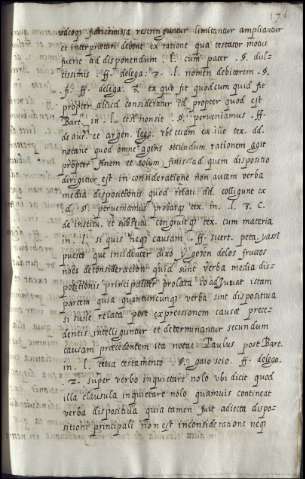 valeqz fideicomissa restringuntur limitantur ampliantur
et interpretari debent ex ratione qua testator motus
fuerit ad disponendum . l. cum pater . §. dul-
tissimis . ff. delega. 2. l. nomen debitorem . §.
ff. delega. et ex quo fit quod cum quid fit
propter aliud consideratur id propter quod est
Bart. in . l. §. pervenimus . ff.
de et ibi etiam ex illo tex. dd.
notant quod omne agens secundum rationem agit
propter finem et solum finis ad quem dispositio
dirigitur est in consideratione non autem verba
media dispositionis quod dd. colligunt ex
d. §. pervenimus probatqz tex. in . l. 1. C.
de institu. et substitu. congruit tex. cum materia
in . l. si quis neqz causam . ff. si cert. peta. y assi
puesto que mildecer dixo y gozen delos frutos
no es de consideracion quia sunt verba media dis-
positionis principaliter prolata etiam
partem quia quantuncunqz verba sint dispositiva
si sint relata post expressionem causae prece-
dentis intelliguntur et determinantur secundum
causam praecedentem ita notat Paulus post Bart.
in . l. cetera testamento . §. gaio seio . ff. delega.
2. super verbo inquietare nolo ubi dicit quod
illa clausula inquietare nolo quamvis contineat
verba dispositiva quia tamen fuit adiecta dispo-
sitioni principali non est in consideratione neqz